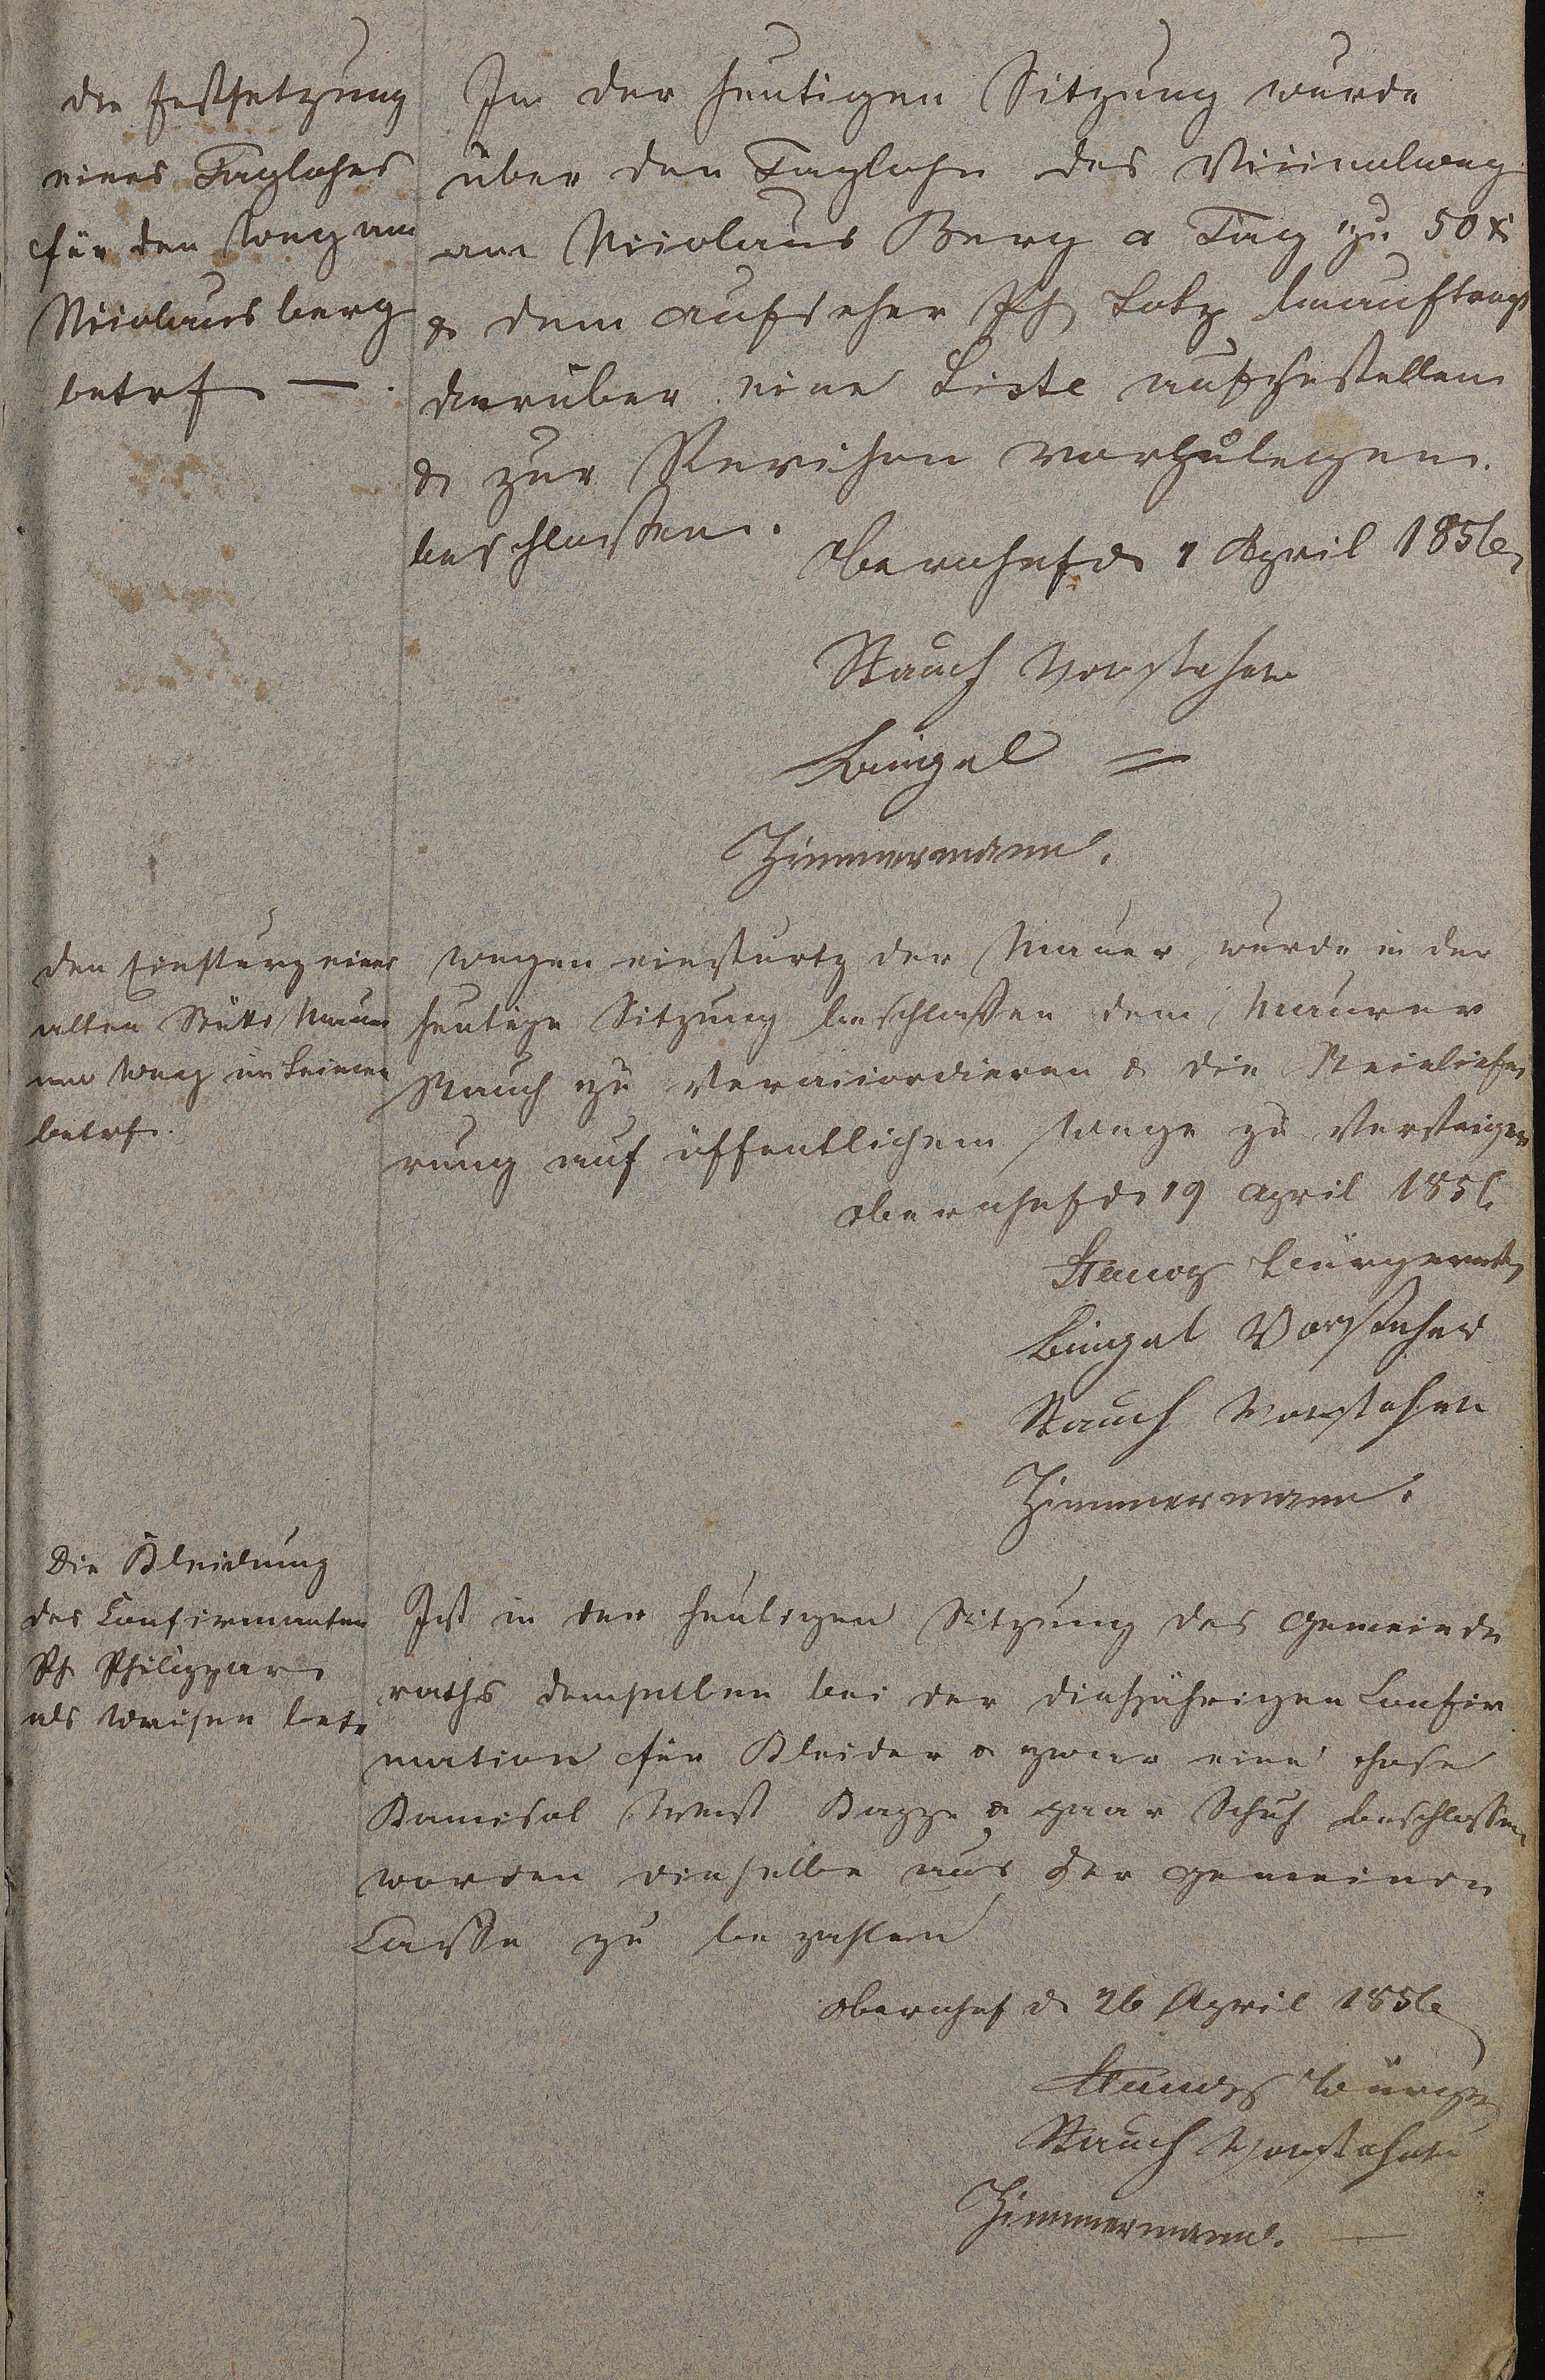 die Festsetzung
eines Taglohes
für den Weg am
Nicolausberg
betrf —.
In der heutigen Sitzung wurde
über den Taglohn des Vicinalweg
am Nicolaus Berg a Tag zu 50 x
& dem Aufseher Ph Lotz beauftragt
darüber eine Liste aufzustellen
& zur Revision vorzulegen.
beschlossen.
Obernhof d 1 April 1856
Stauch Vorsteher
Bingel =
Zimmermann.
den Einsturz einer
alten Stütz Mauer
am Weg im Leimen
betrf.
wegen einsturtz der Mauer wurde in der
heutige Sitzung beschlossen dem Maurer
Stauch zu veraccordieren & die Steinliefe
rung auf öffentlichem Wege zu versteigern
Obernhof d 19 April 1856
Bürgermstr
Bingel Vorsteher
Stauch Vorsteher
Zimmermann.
Die Kleidung
des Confirmanten
Ph Philippar
als Waisen betr
Ist in der heutigen Sitzung des Gemeinde
raths demselben bei der diesjährigen Confir
mation für Kleider & zwar eine Hose
Kamisol West Kappe & paar Schuh beschlossen
worden dieselbe aus der gemeinen
Casse zu bezahlen
Obernhof d 26 April 1856
Bürger
Stauch Vorsteher
Zimmermann. —